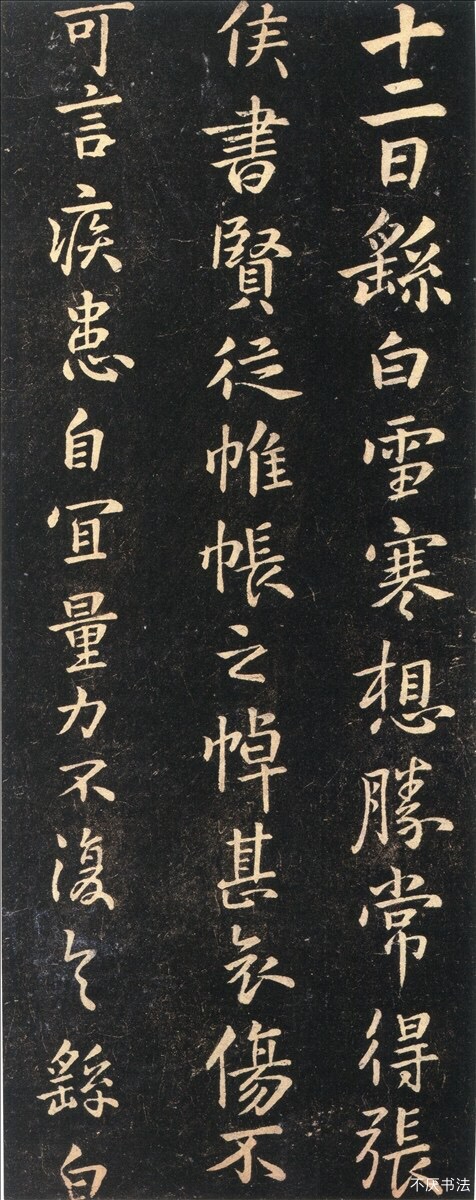 十二日繇白雪寒想勝常得張
侯書賢從帷帳之悼甚哀傷不
可言疾患自宜量力不復具繇白
不厌书法